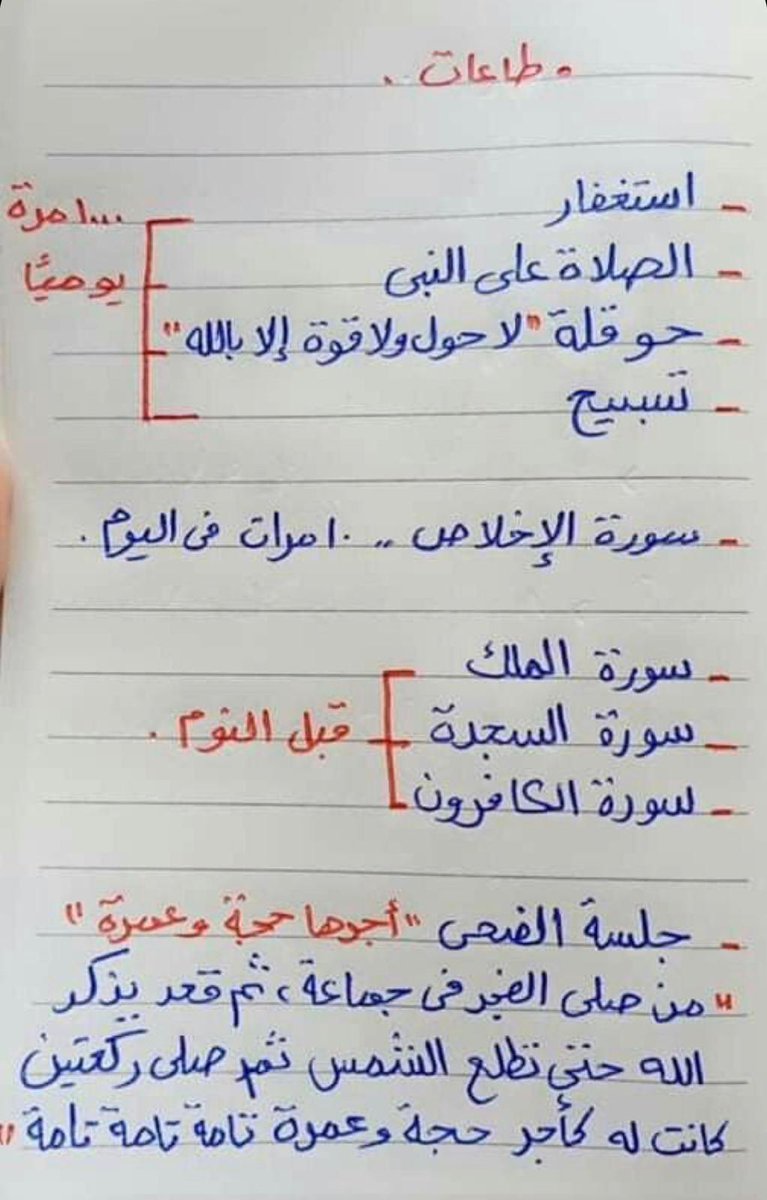 • طاعات .
- استغفار
- الصلاة على النبى
- حوقلة "لا حول ولا قوة إلا بالله"
- تسبيح
١٠٠٠ مرة
يوميًا
- سورة الإخلاص .. ١٠ مرات فى اليوم .
- سورة الملك
- سورة السجدة
- سورة الكافرون
قبل النوم .
- جلسة الضحى "أجرها حجة وعمرة"
"من صلى الفجر فى جماعة، ثم قعد يذكر
الله حتى تطلع الشمس ثم صلى ركعتين
كانت له كأجر حجة وعمرة تامة تامة تامة"